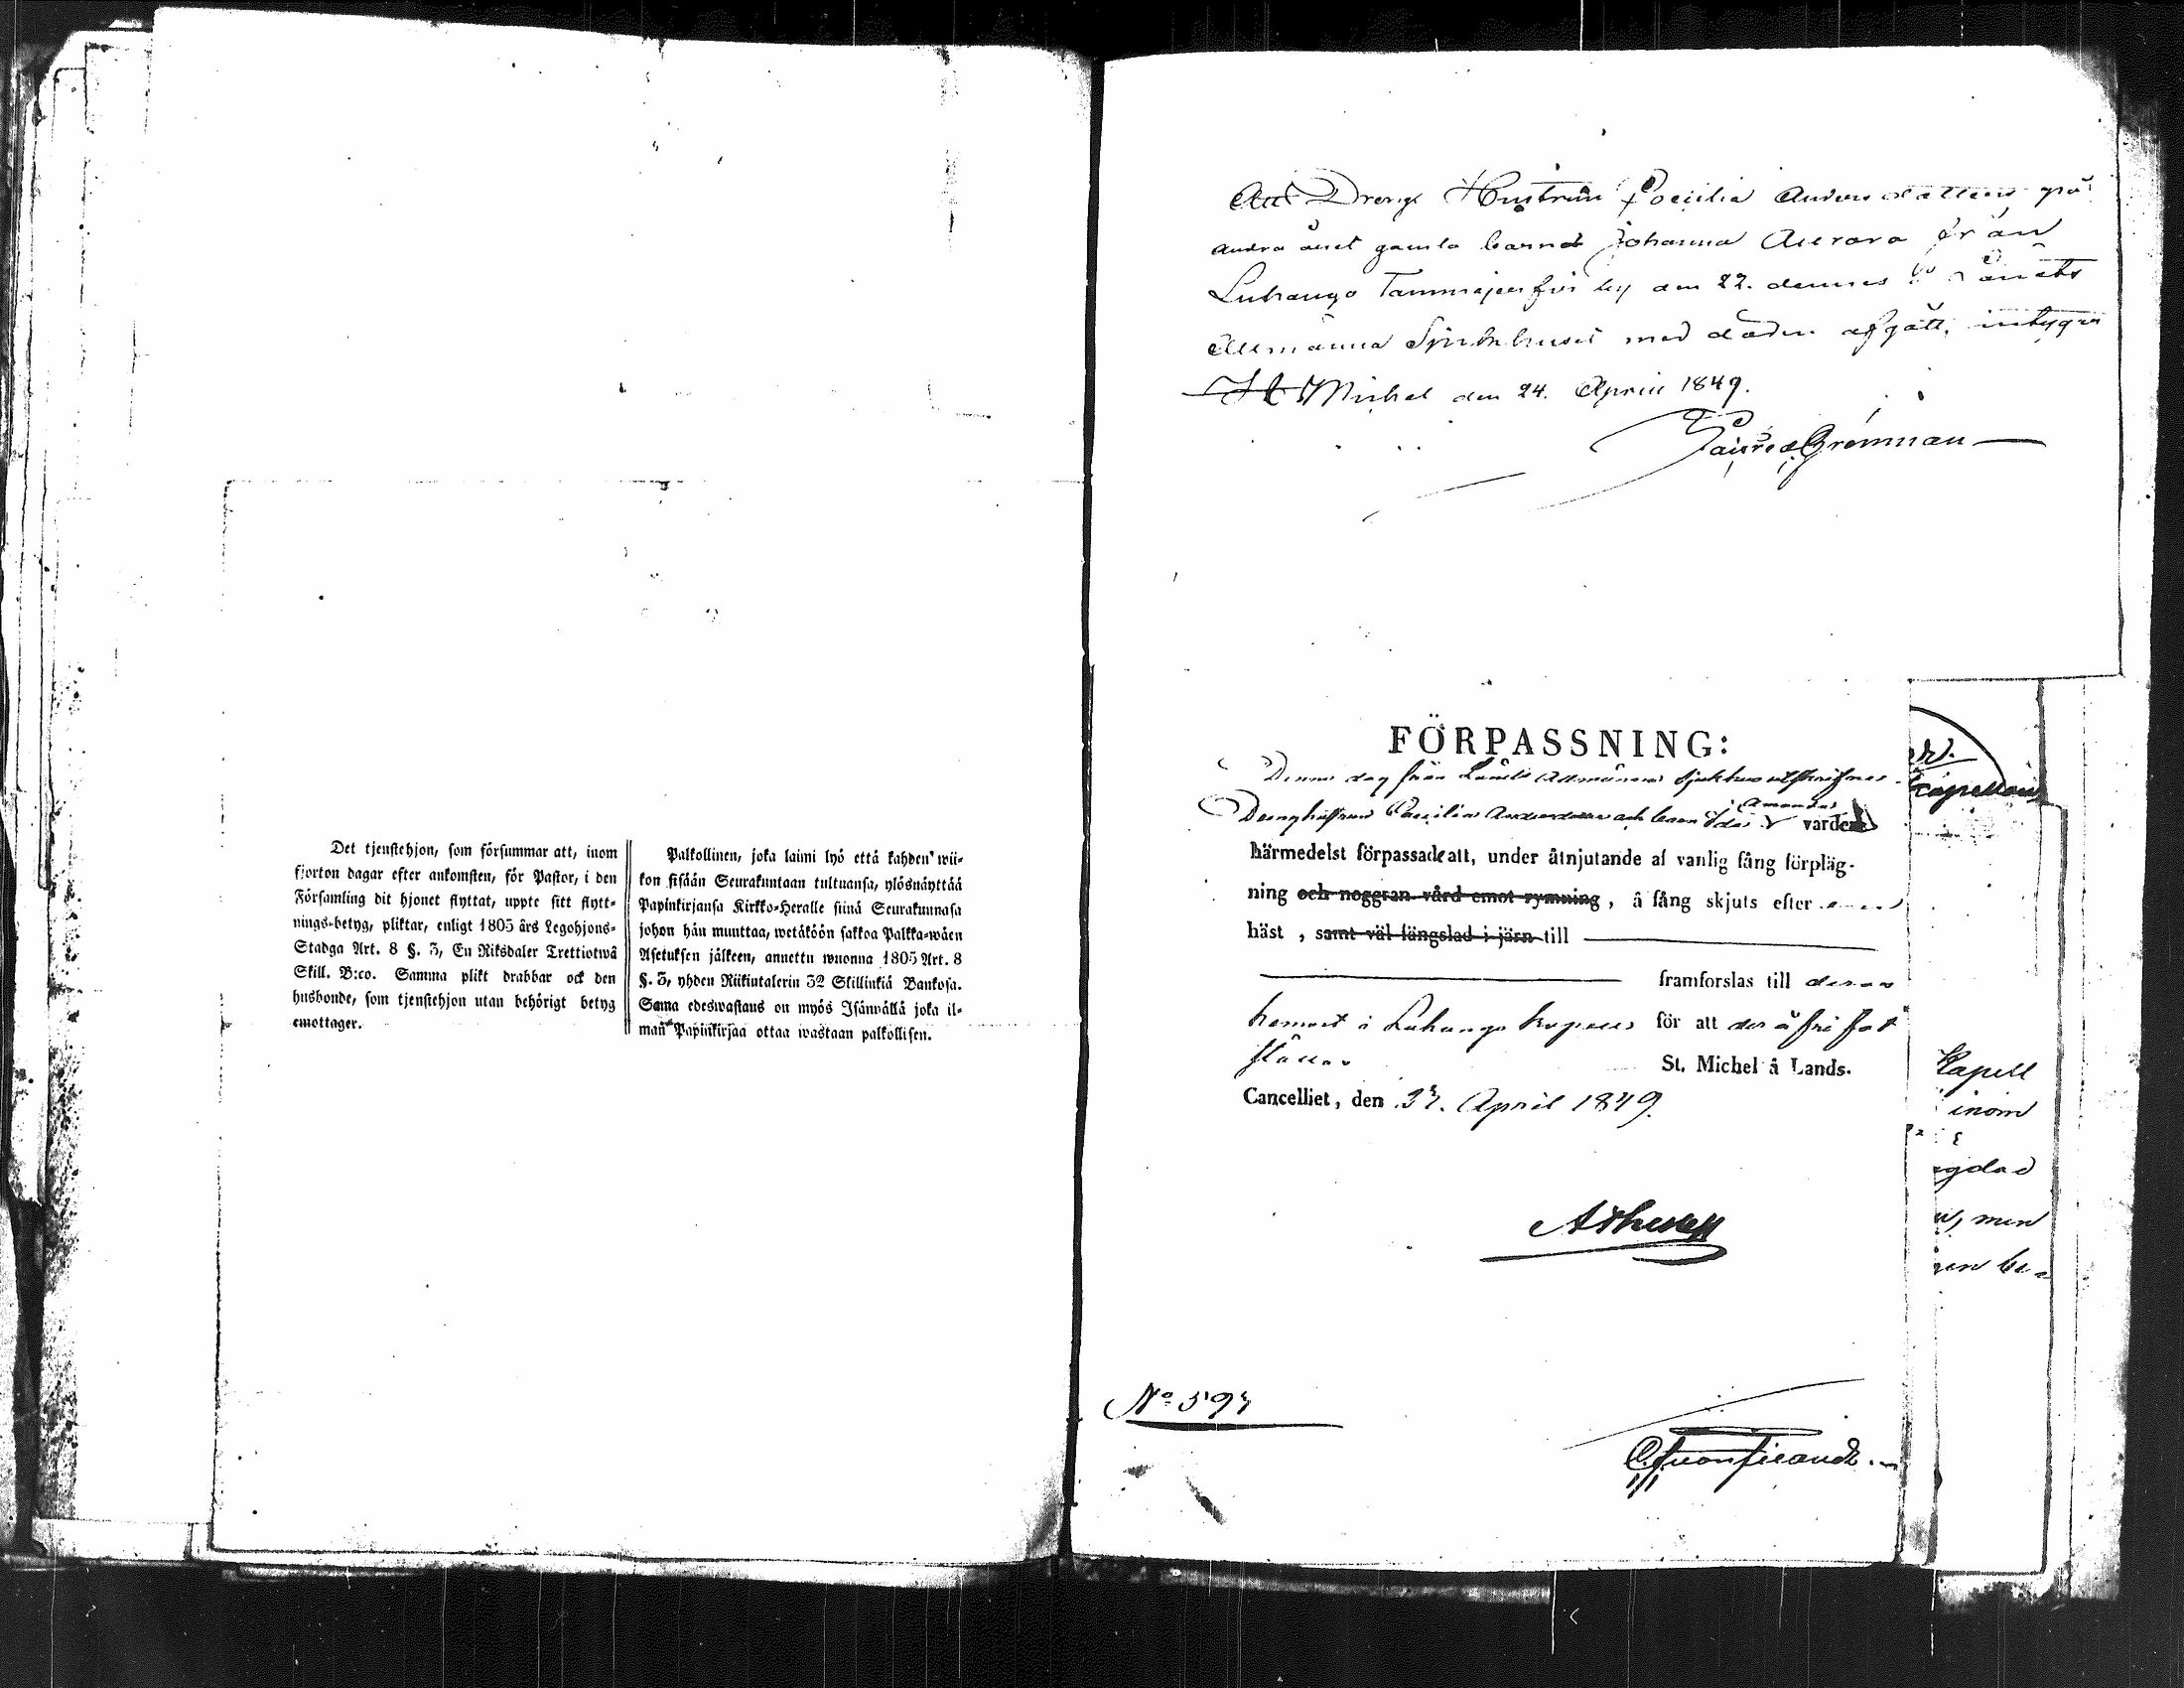 Det tjenstehjon, som försummar att, inom
fjorton dagar efter ankomsten, för Pastor, i den
Församling dit hjonet flyttat, uppte sitt flytt-
nings-betyg, pliktar, enligt 1805 års Legohjons-
Stadga Art. 8 §. 3, En Riksdaler Trettiotwå
Skill. B:co. Samma plikt drabbar ock den
husbonde, som tjenstehjon utan behörigt betyg
emottager.
Palkollinen, joka laimi lyö että kahden wii-
kon sisään Seurakuntaan tultuansa, ylösnäyttää
Papinkirjansa Kirkko-Heralle siinä Seurakunnasa
johon hän muuttaa, wetäköön sakkoa Palkka-wäen
Asetuksen jälkeen, annettu wuonna 1805 Art. 8
§. 3, yhden Riikintalerin 32 Skillinkiä Bankosa.
Sama edeswastaus on myös Isännällä joka il-
man Papinkirjaa ottaa wastaan palkollisen.
Att Dreng Hustrun Coecilia Andersdotters på
andra året gamla barnet Johanna Aurora från
Luhango by den 22. dennes
Allmänna Sjukhuset med döden afgått, intygar
St Michel den 24. April 1849.
FÖRPASSNING:
Denna dag från Länets Allmänna Sjukhus utskrifne
Drenghustrun Caecilia Andersdotter och barn Ida Amanda varde
härmedelst förpassade att, under åtnjutande af vanlig fång förpläg-
ning och noggran vård emot rymning, å fång skjuts efter en
häst, samt väl fängslad i järn till
framforslas till deras
hemort i Luhango kapell för att der å fri fot
ställas St. Michel å Lands-
Cancelliet, den April 1849.
No
Kapell
inom
men